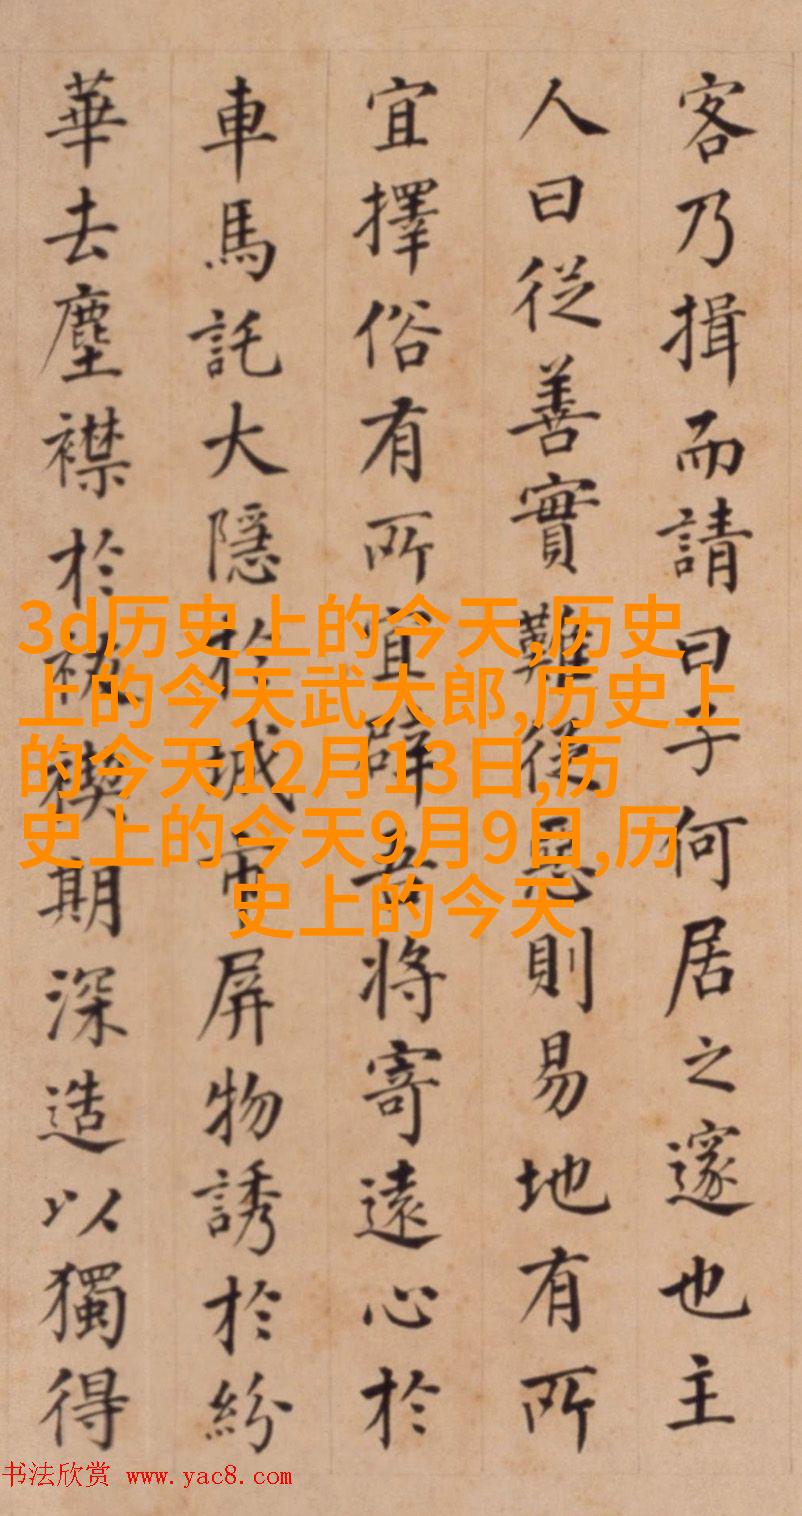 客乃揖而請曰子何居之邃也主
人曰從善實難從惡則易地有所
宜擇俗有所宜辟吾將寄遠心於
車馬託大隱於城市屏物誘於紛
華去塵襟於祓禊期深造以獨得
3d历史上的今天,历史
上的今天武大郎,历史上
的今天12月13日,历
史上的今天9月9日,历
史上的今天
书法欣赏 www.yac8.com